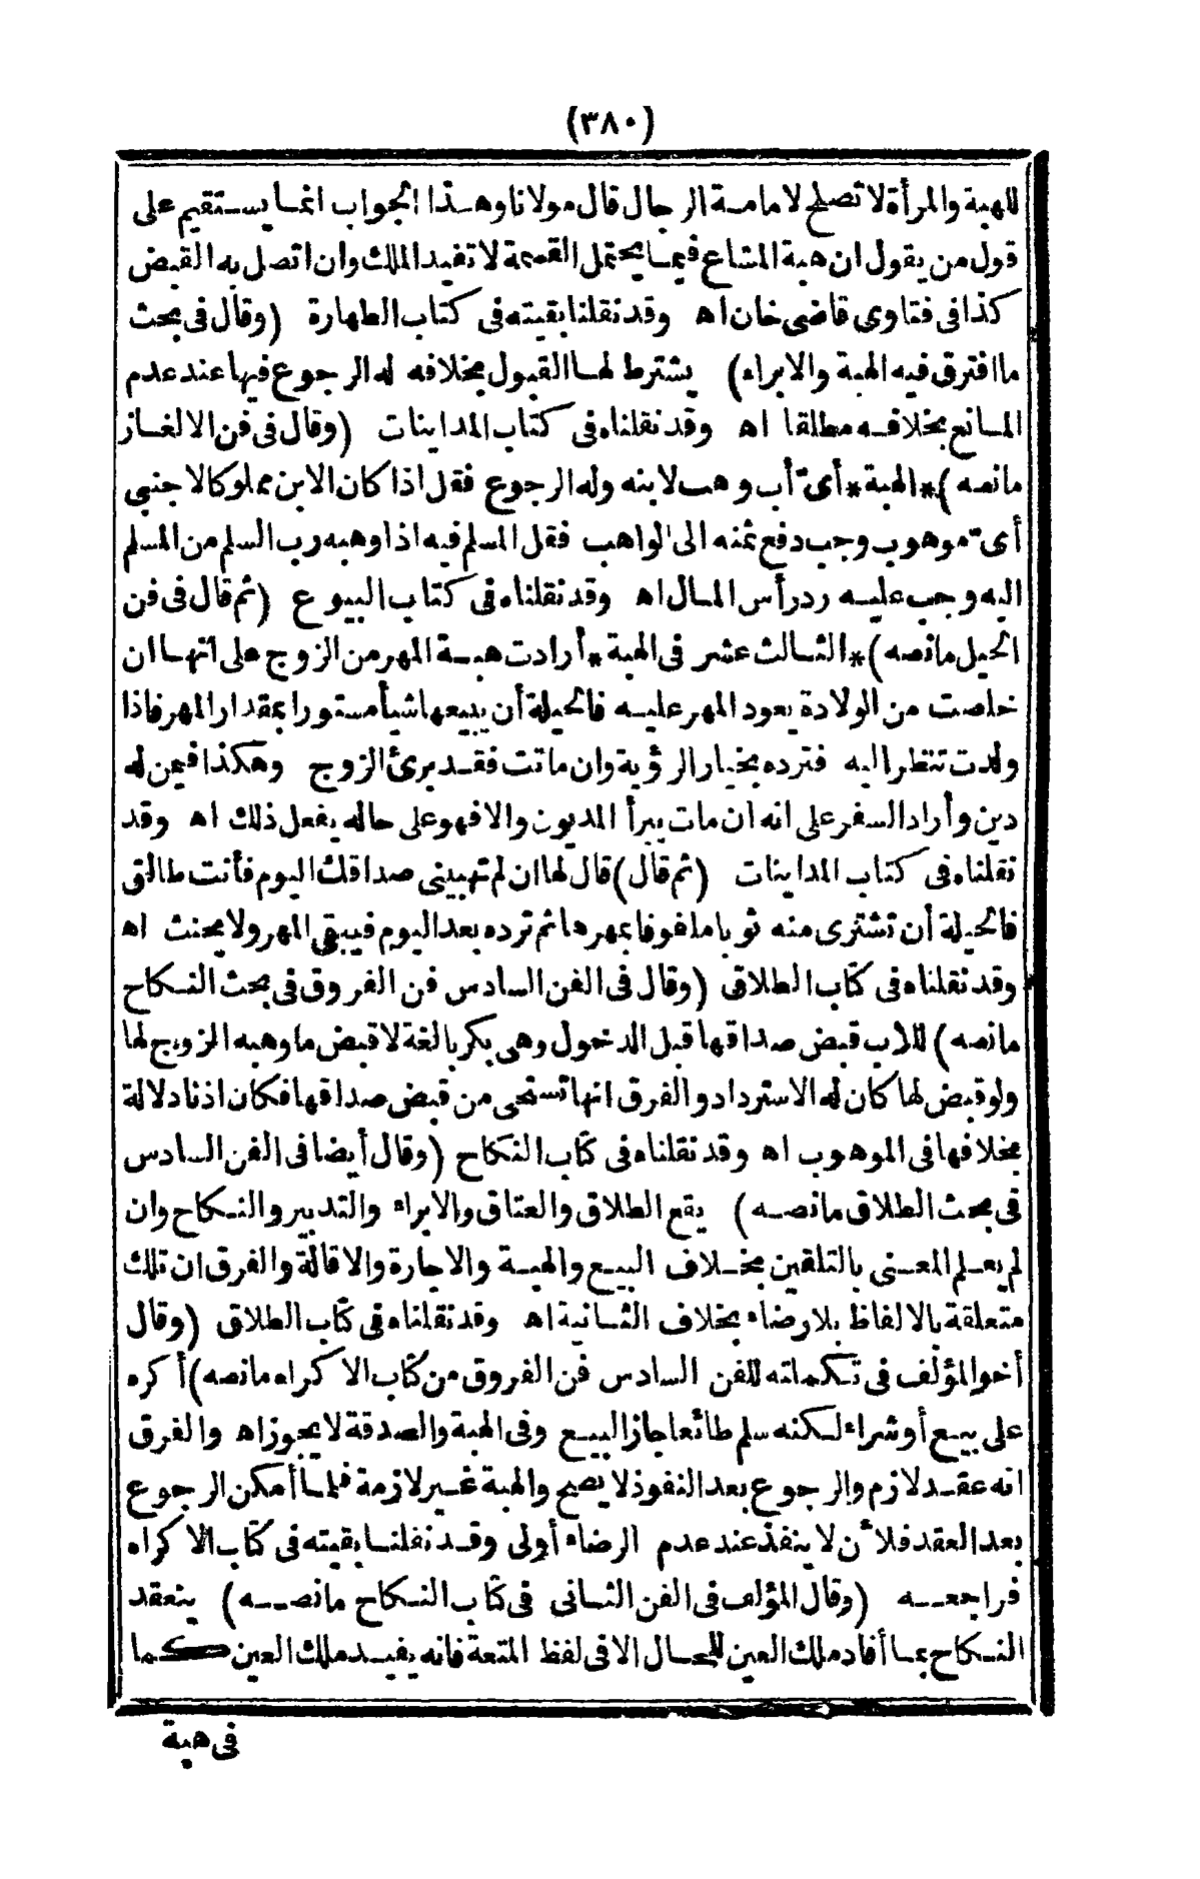 (٣٨٠)
للهبة والمرأة لا تصلح لامامة الرجال قال مولانا وهذا الجواب انما يستقيم على
قول من يقول ان هبة المشاع فيما يحتمل القسمة لا تفيد الملك وان اتصل به القبض
كذا فى فتاوى قاضى خان اه وقد نقلنا بقيته فى كتاب الطهارة (وقال فى بحث
ما افترق فيه الهبة والابراء) يشترط لها القبول بخلافه له الرجوع فيها عند عدم
المانع بخلافه مطلقا اه وقد نقلناه فى كتاب المداينات (وقال فى فن الالغاز
مانصه) *الهبة* أىّ أب وهب لابنه وله الرجوع فقل اذا كان الابن مملوكا لاجنبى
أىّ موهوب وجب دفع ثمنه الى الواهب فقل المسلم فيه اذا وهبه رب السلم من المسلم
اليه وجب عليه رد رأس المال اه وقد نقلناه فى كتاب البيوع (ثم قال فى فن
الحيل مانصه) *الثالث عشر فى الهبة* أرادت هبة المهر من الزوج على انها ان
خلصت من الولادة يعود المهر عليه فالحيلة أن يبيعها شيأ مستورا بمقدار المهر فاذا
ولدت تنظر اليه فترده بخيار الرؤية وان ماتت فقد برئ الزوج وهكذا فيمن له
دين وأراد السفر على انه ان مات يبرأ المديون والا فهو على حاله يفعل ذلك اه وقد
نقلناه فى كتاب المداينات (ثم قال) قال لها ان لم تهبينى صداقك اليوم فأنت طالق
فالحيلة أن تشترى منه ثوبا ملفوفا بمهرها ثم ترده بعد اليوم فيبقى المهر ولا يحنث اه
وقد نقلناه فى كتاب الطلاق (وقال فى الفن السادس فن الفروق فى بحث النكاح
مانصه) للاب قبض صداقها قبل الدخول وهى بكر بالغة لا قبض ما وهبه الزوج لها
ولو قبض لها كان له الاسترداد والفرق انها تستحى من قبض صداقها فكان اذنا دلالة
بخلافها فى الموهوب اه وقد نقلناه فى كتاب النكاح (وقال أيضا فى الفن السادس
فى بحث الطلاق مانصه) يقع الطلاق والعتاق والابراء والتدبير والنكاح وان
لم يعلم المعنى بالتلقين بخلاف البيع والهبة والاجارة والاقالة والفرق ان تلك
متعلقة بالالفاظ بلا رضاء بخلاف الثانية اه وقد نقلناه فى كتاب الطلاق (وقال
أخو المؤلف فى تكملته للفن السادس فن الفروق من كتاب الاكراه مانصه) أكره
على بيع أو شراء لكنه سلم طائعا جاز البيع وفى الهبة والصدقة لا يجوز اه والفرق
انه عقد لازم والرجوع بعد النفوذ لا يصح والهبة غير لازمة فلما أمكن الرجوع
بعد العقد فلأن لا ينفذ عند عدم الرضاء أولى وقد نقلنا بقيته فى كتاب الاكراه
فراجعه (وقال المؤلف فى الفن الثانى فى كتاب النكاح مانصه) ينعقد
النكاح بما أفاد ملك العين للحال الا فى لفظ المتعة فانه يفيد ملك العين كما
فى هبة